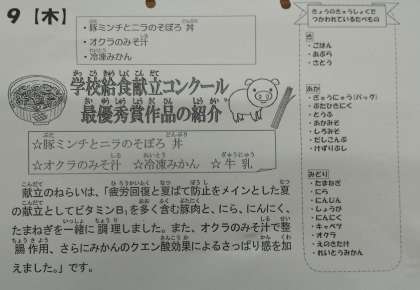 9 【木】
・豚ミンチとニラのそぼろ丼
・オクラのみそ汁
・冷凍みかん
学校給食献立コンクール
最優秀賞作品の紹介
☆豚ミンチとニラのそぼろ丼
☆オクラのみそ汁 ☆冷凍みかん ☆牛乳
献立のねらいは、「疲労回復と夏ばて防止をメインとした夏
の献立としてビタミンB₁を多く含む豚肉と、にら、にんにく、
たまねぎを一緒に調理しました。また、オクラのみそ汁で整
腸作用、さらにみかんのクエン酸効果によるさっぱり感を加
えました。」です。
きょうのきゅうしょくで
つかわれているたべもの
き
・ごはん
・あぶら
・さとう
あか
・ぎゅうにゅう(パック)
・ぶたひきにく
・とうふ
・あかみそ
・しろみそ
・だしこんぶ
・けずりぶし
みどり
・たまねぎ
・にら
・にんじん
・しょうが
・にんにく
・キャベツ
・オクラ
・えのきたけ
・れいとうみかん